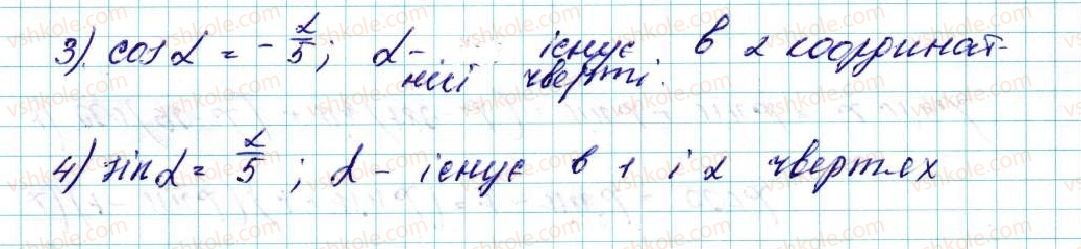 3) cos α = - 2/5; α - існує в 2 координат-
ній чверті.
4) sin α = 2/5; α - існує в 1 і 2 чвертях